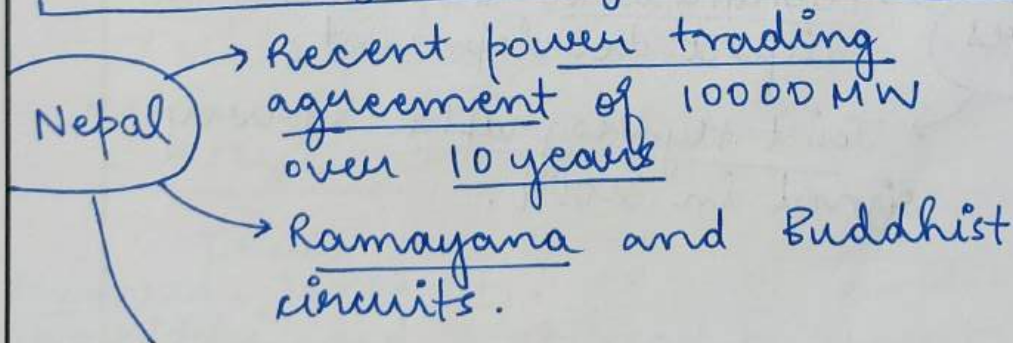 Nepal
→ Recent power trading
agreement of 10000 MW
over 10 years
→ Ramayana and Buddhist
circuits.